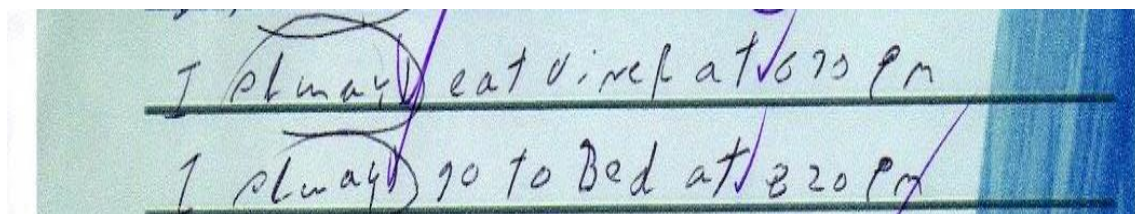 I always eat diner at 6 30 pm
I always go to Bed at 8 20 pm